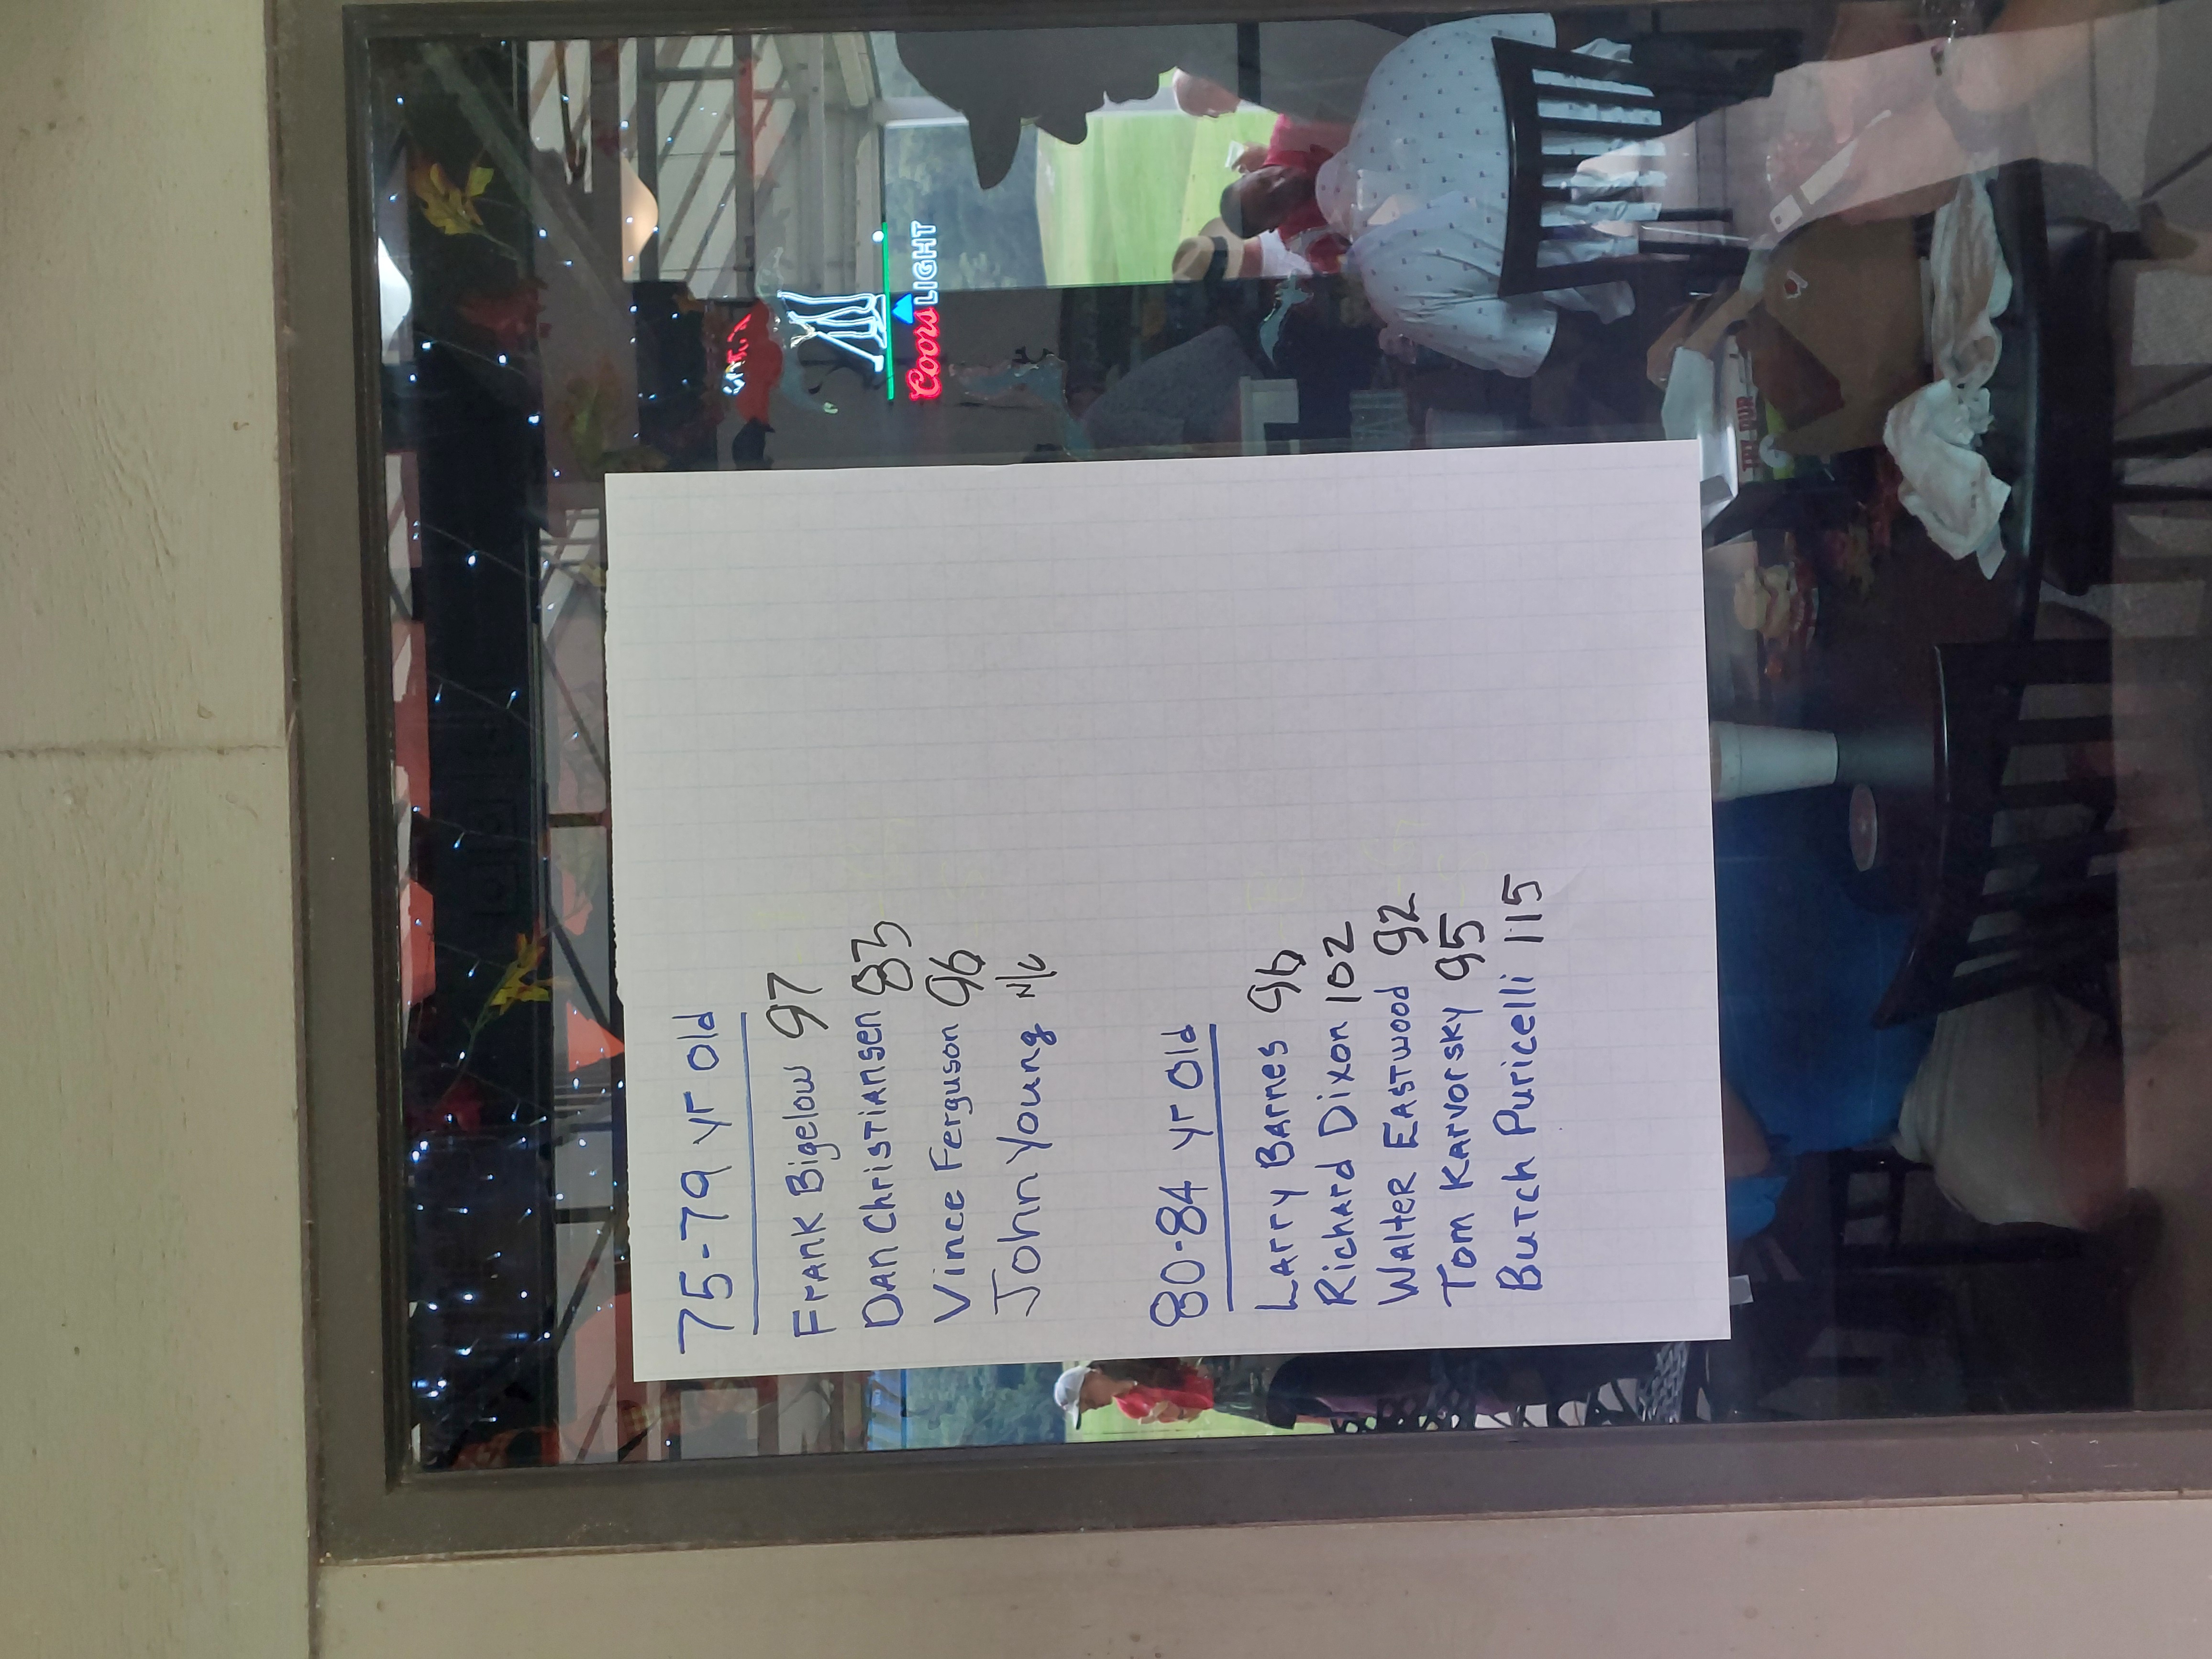 75-79 yr old
Frank Bigelow 97
Dan Christiansen 83
Vince Ferguson 96
John Young N/C
80-84 yr old
Larry Barnes 96
Richard Dixon 102
Walter Eastwood 92
Tom Karvorsky 95
Butch Puricelli 115
Coors LIGHT